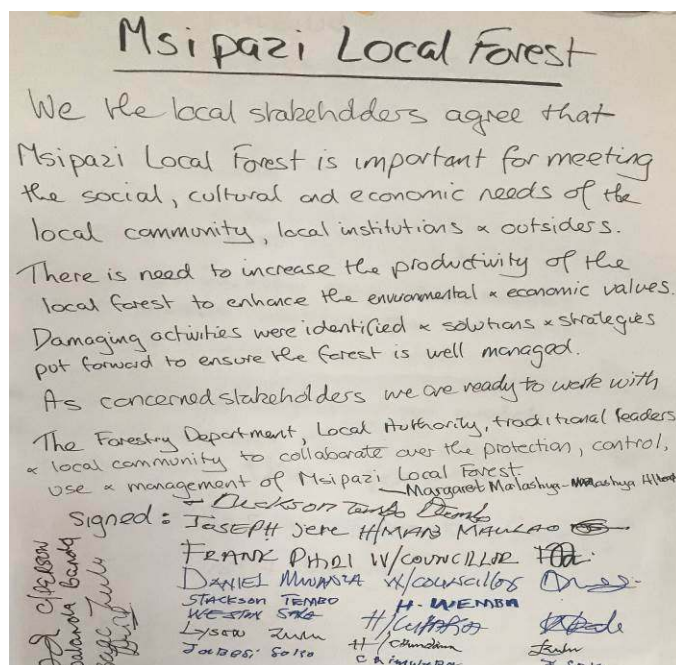 Msipazi Local Forest
We the local stakeholders agree that
Msipazi Local Forest is important for meeting
the social, cultural and economic needs of the
local community, local institutions & outsiders.
There is need to increase the productivity of the
local forest to enhance the environmental & economic values.
Damaging activities were identified & solutions & strategies
put forward to ensure the forest is well managed.
As concerned stakeholders we are ready to work with
The Forestry Department, Local Authority, traditional leaders
& local community to collaborate over the protection, control,
use & management of Msipazi Local Forest
- Margaret Malashya -
- Dickson Tembo
Signed: Joseph Jere H/MAN
FRANK PHIRI W/COUNCILLOR
DANIEL MWANZA W/COUNCILLOR
STACKSON TEMBO H. WEMBA
WESTON
Lyson Zulu H/
C/PERSON
Banda
Zulu